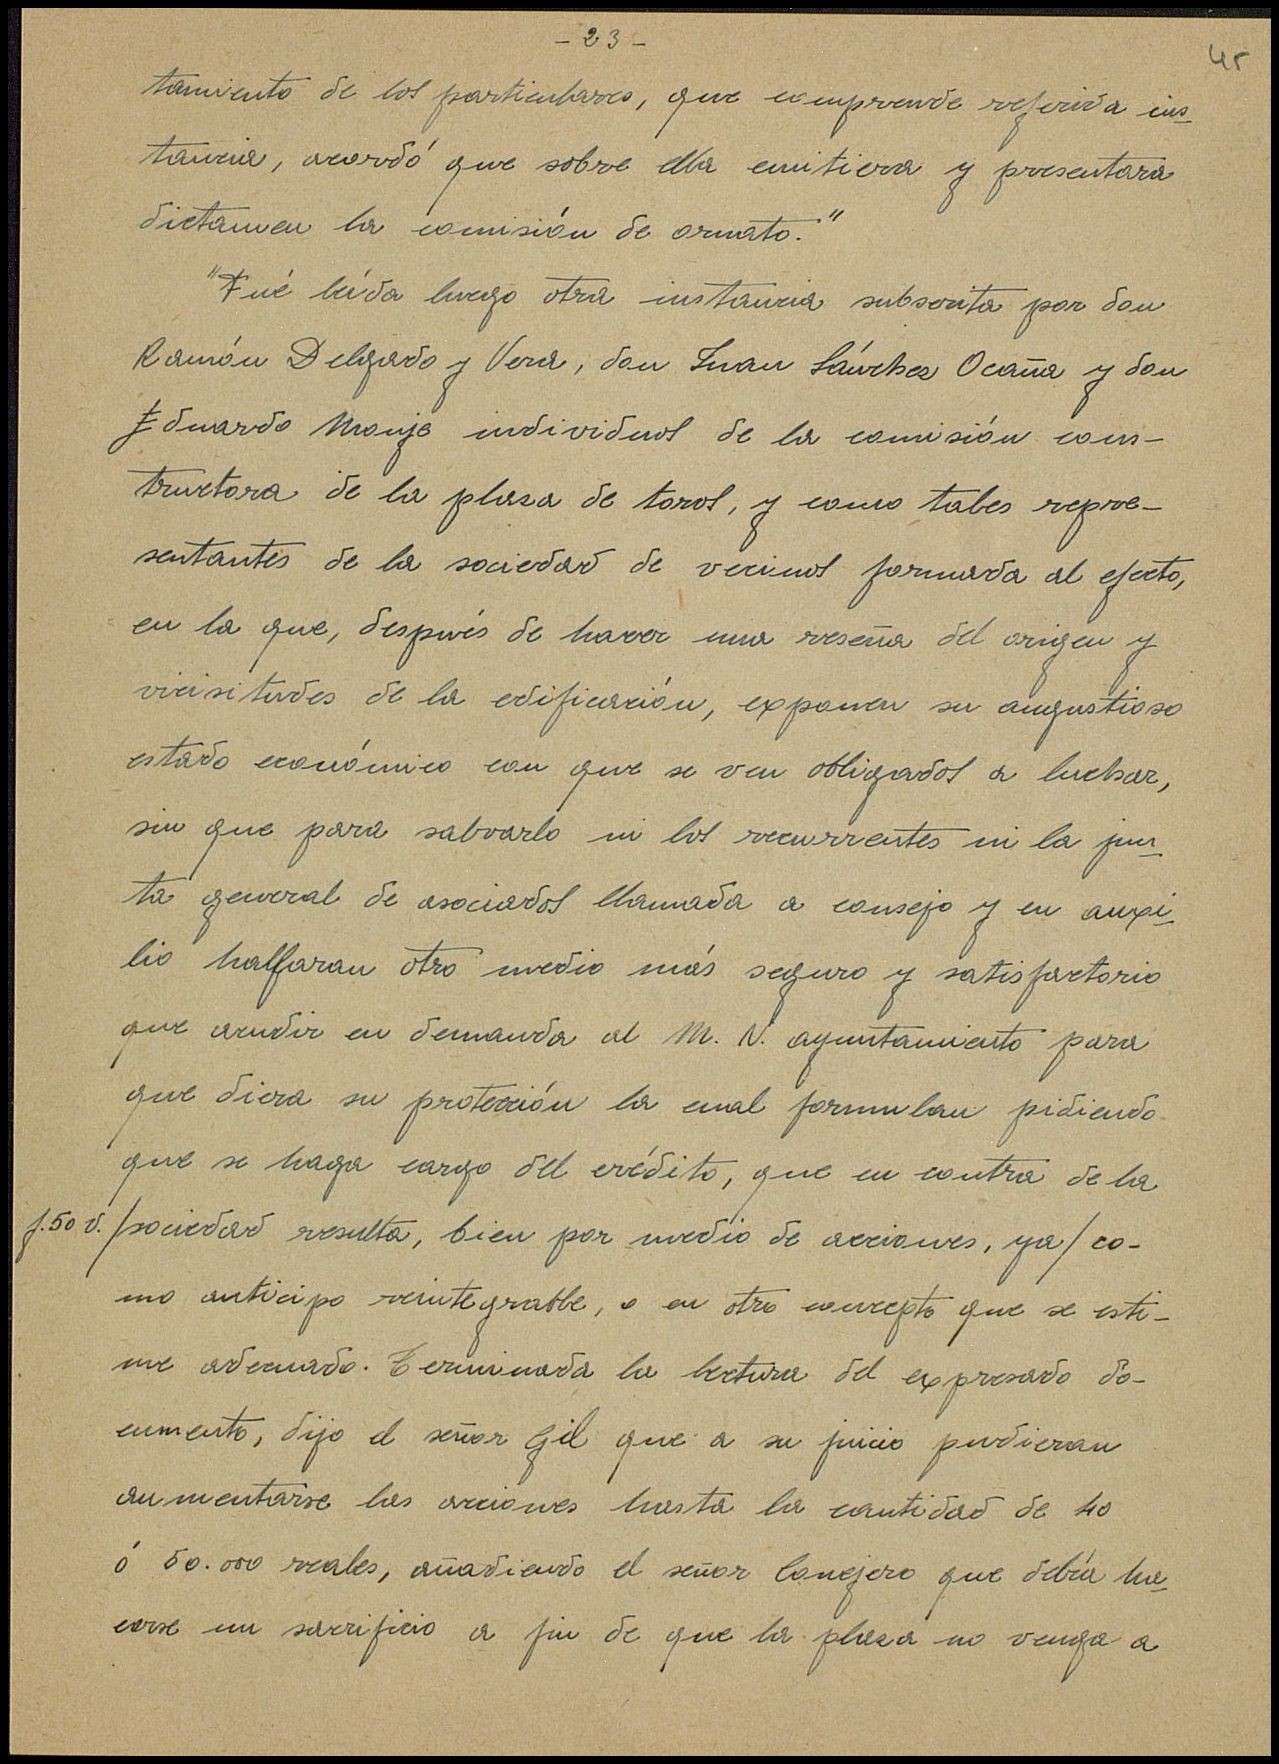 - 23 -
45
tamiento de los particulares, que comprende referida ins-
tancia, acordó que sobre ella emitiera y presentara
dictamen la comisión de ornato."
"Fué leída luego otra instancia subscrita por don
Ramón Delgado y Vera, don Juan Sánchez Ocaña y don
Eduardo Monje individuos de la comisión cons-
tructora de la plaza de toros, y como tales repre-
sentantes de la sociedad de vecinos formada al efecto,
en la que, después de hacer una reseña del origen y
vicisitudes de la edificación, exponen su angustioso
estado económico con que se ven obligados a luchar,
sin que para salvarlo ni los recurrentes ni la jun-
ta general de asociados llamada a consejo y en auxi-
lio hallaran otro medio más seguro y satisfactorio
que acudir en demanda al M. N. ayuntamiento para
que diera su protección la cual formulan pidiendo
que se haga cargo del crédito, que en contra de la
f. 50 v. /sociedad resulta, bien por medio de acciones, ya/ co-
mo anticipo reintegrable, o en otro concepto que se esti-
me adecuado. Terminada la lectura del expresado do-
cumento, dijo el señor Gil que a su juicio pudieran
aumentarse las acciones hasta la cantidad de 40
ó 50.000 reales, añadiendo el señor Conejero que debía ha-
cerse un sacrificio a fin de que la plaza no venga a